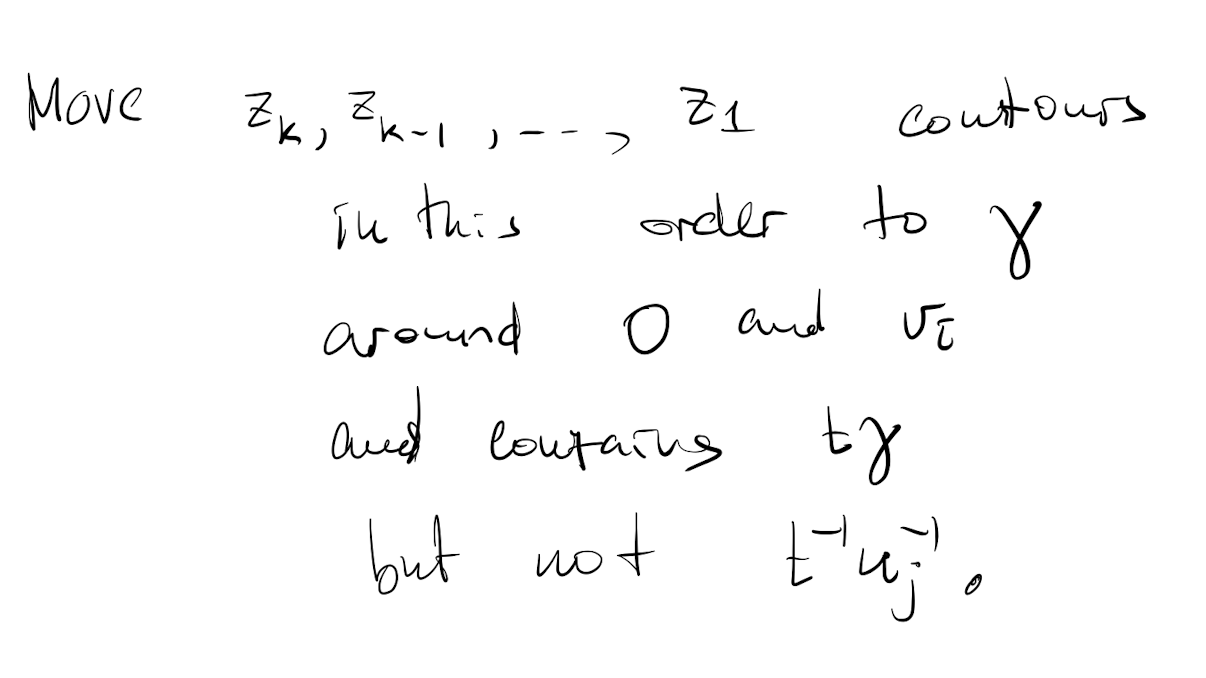 Move z_k, z_{k-1}, ..., z_1 contours
in this order to γ
around 0 and v_i
and contains tγ
but not t^{-1}u_j^{-1}.